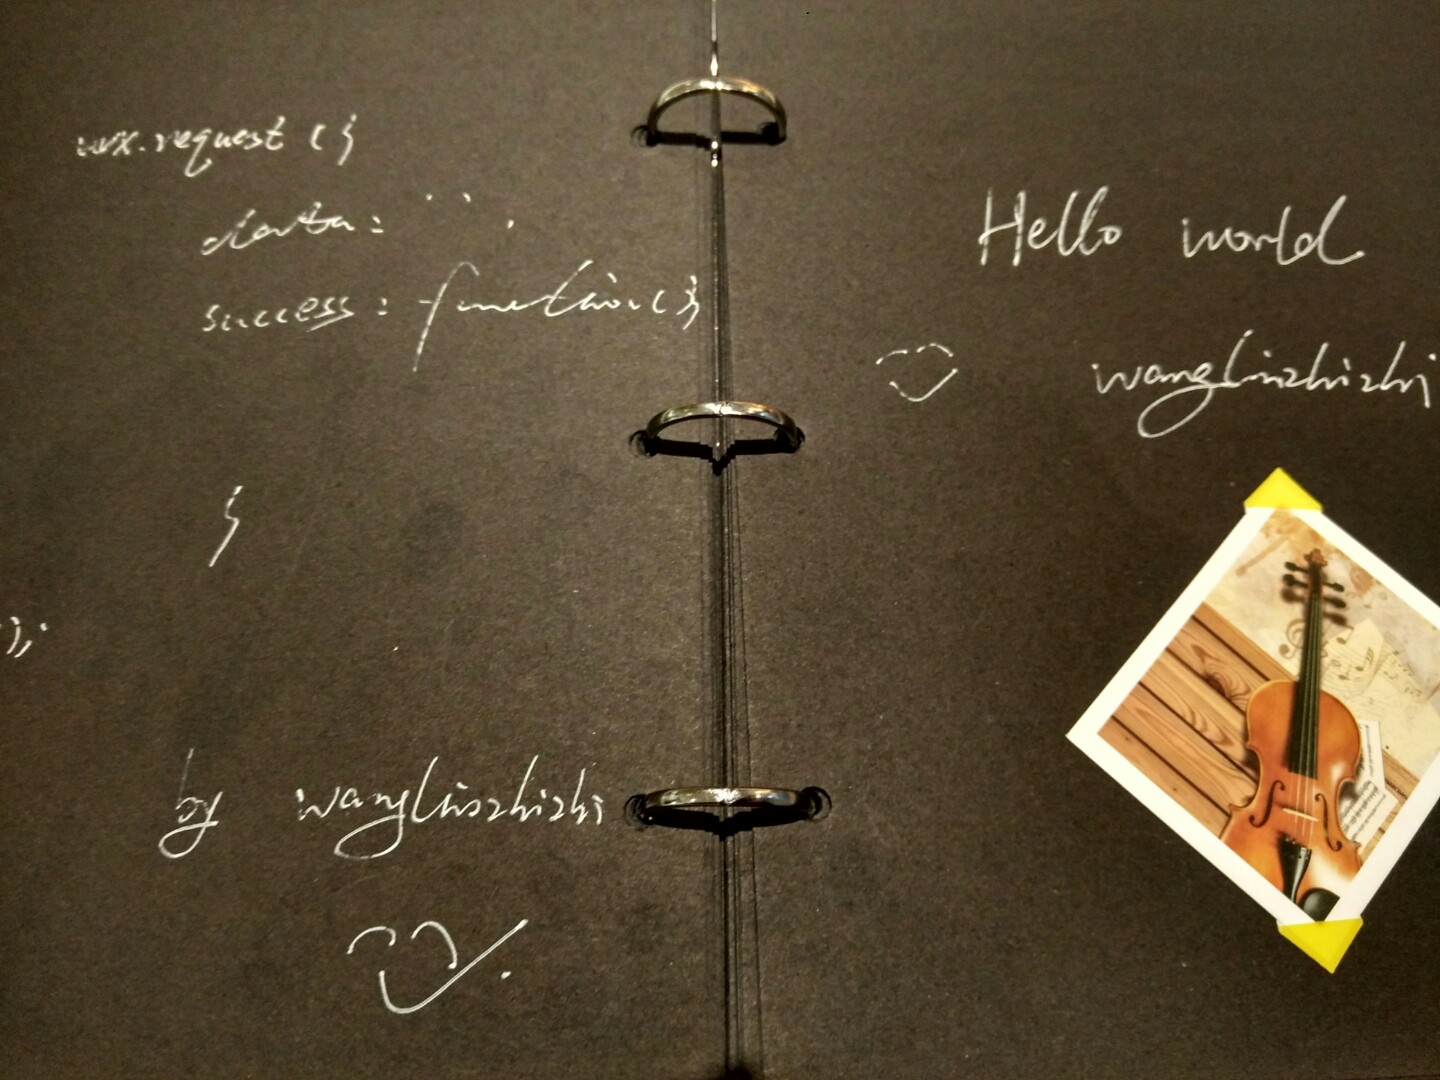 wx.request({
data: '''.
success: function(){
}
});
by wanglinzhizhi
Hello world
wanglinzhizhi